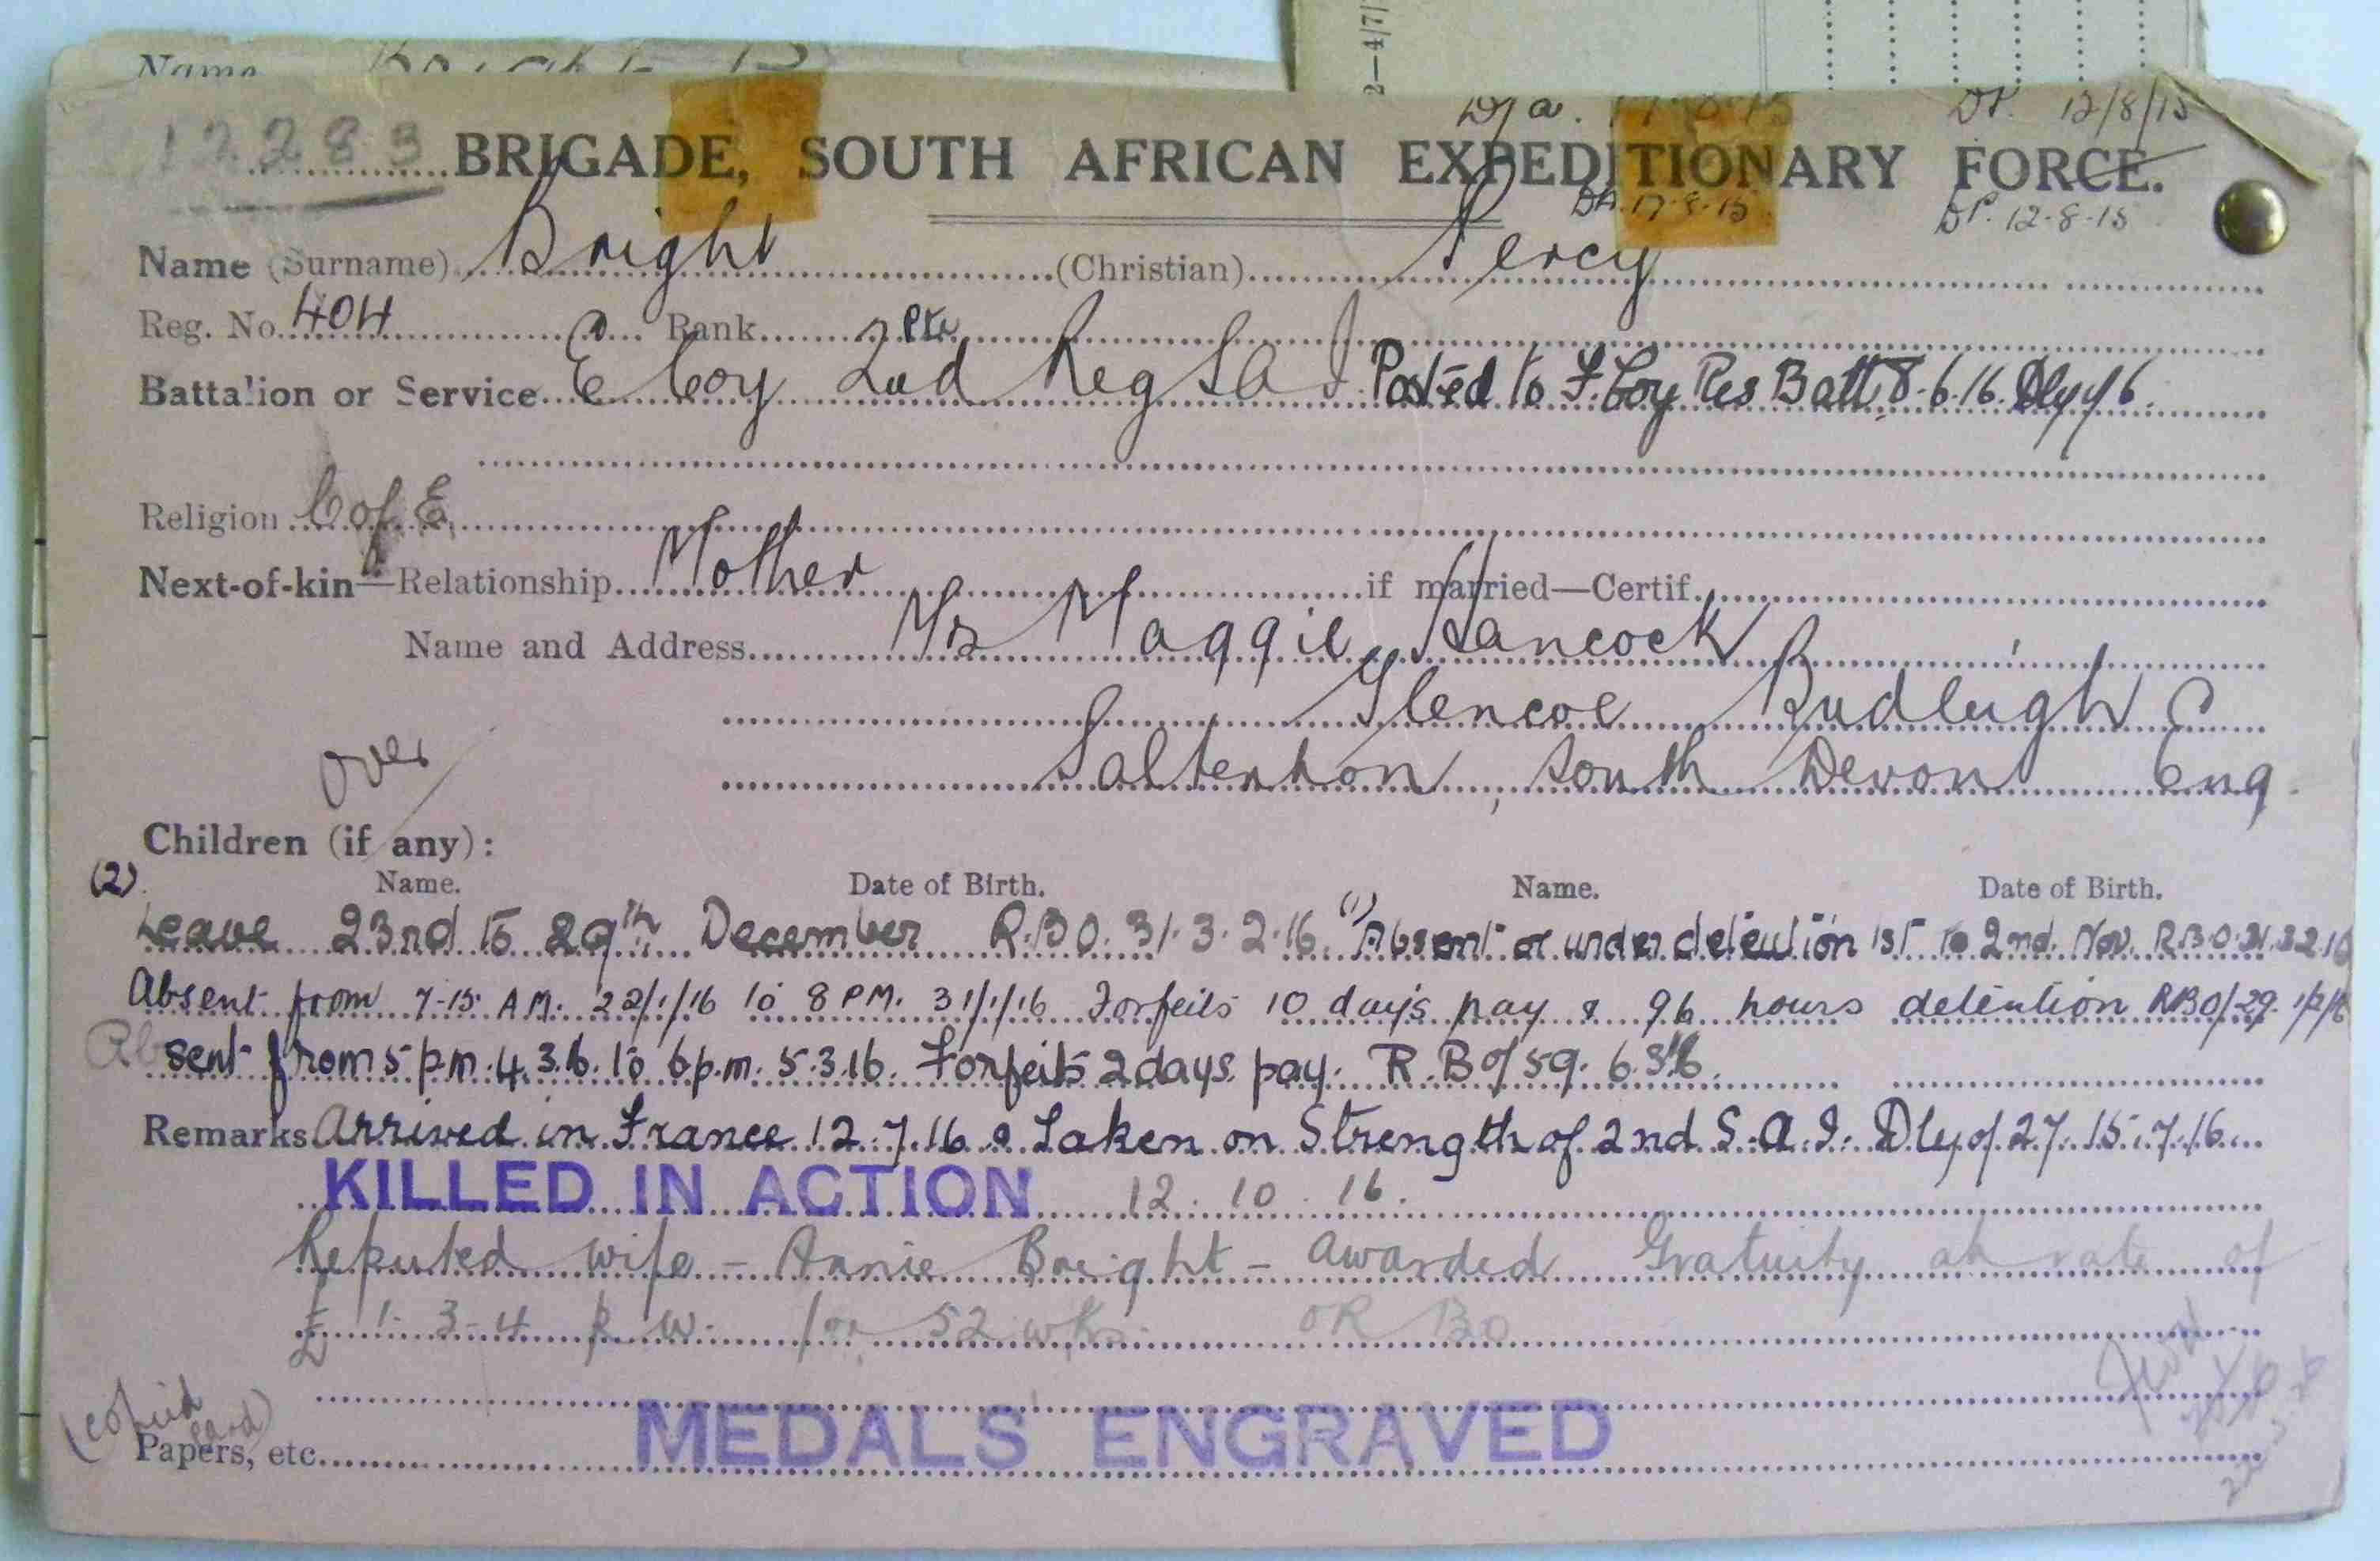 Name Bright P
2—4/7/
D/a. 17-8-15 DP. 12/8/15
12283 BRIGADE, SOUTH AFRICAN EXPEDITIONARY FORCE.
DA. 17-8-15 DP. 12-8-15
Name (Surname) Bright (Christian) Percy
Reg. No. 404 Rank Pte
Battalion or Service E Coy 2nd Reg S A I Posted to F. Coy Res Batt. 8.6.16. Dly
Religion C of E.
Next-of-kin—Relationship Mother if married—Certif.
Name and Address Mrs Maggie Hancock
Glencoe Budleigh
Salterton, South Devon Eng.
over
Children (if any):
(2) Name. Date of Birth. Name. Date of Birth.
Leave 23rd to 29th December R.B.O. 31. 3.2.16. (1) Absent or under detention 1st to 2nd. Nov. R.B.O. 31. 3.2.16
Absent from 7-15 A.M. 22/1/16 to 8 P.M. 31/1/16 Forfeits 10 day's pay & 96 hours detention RBO/29. 1/2/16
Absent from 5 p.m. 4.3.16. to 6 p.m. 5.3.16. Forfeits 2 days. pay. R.B.O/59. 6.3.16.
Remarks Arrived in France 12.7.16 & Taken on Strength of 2nd S.A.I. Dly of. 27. 15.7.16
KILLED IN ACTION 12.10.16.
Reputed wife - Annie Bright - awarded Gratuity at rate of
£1-3-4 p.w. for 52 wks OR 130
(copied card)
Papers, etc. MEDALS ENGRAVED